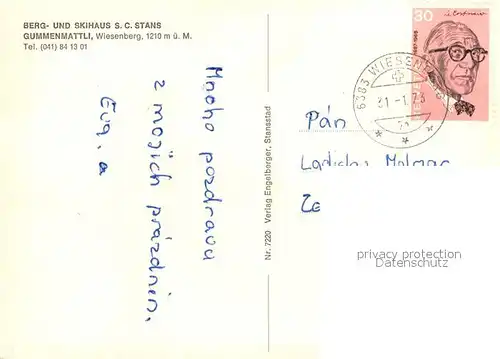 BERG- UND SKIHAUS S. C. STANS
GUMMENMATTLI, Wiesenberg, 1210 m ü. M.
Tel. (041) 84 13 01
Mnoho pozdravu
z mojich prázdnin.
Eva. a
Nr. 7220 Verlag Engelberger, Stansstad
30
6383 WIESENB
31.-1.73
Pán
Ladislav
Ze
privacy protection
Datenschutz